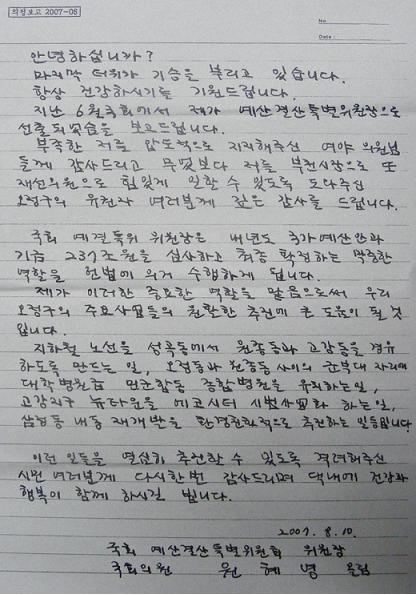 의정보고 2007-05
No.
Date :
안녕하십니까?
마지막 더위가 기승을 부리고 있습니다.
항상 건강하시기를 기원드립니다.
지난 6월국회에서 제가 예산결산특별위원장으로
선출되었음을 보고드립니다.
부족한 저를 압도적으로 지지해주신 여야 의원님
들께 감사드리고 무엇보다 저를 부천시장으로 또
재선의원으로 힘있게 일할 수 있도록 도와주신
오정구의 유권자 여러분께 깊은 감사를 드립니다.
국회 예결특위 위원장은 내년도 국가예산안과
기금 237조원을 심사하고 최종 확정하는 막중한
역할을 헌법에 의거 수행하게 됩니다.
제가 이러한 중요한 역할을 맡음으로써 우리
오정구의 주요사업들의 원활한 추진에 큰 도움이 될 것
입니다.
지하철 노선을 성곡동에서 원종동과 고강동을 경유
하도록 만드는 일, 오정동과 원종동 사이의 군부대 자리에
대학병원급 민군합동 종합병원을 유치하는일,
고강지구 뉴타운을 에코시티 시범사업화 하는일,
삼정동 내동 재개발을 환경친화적으로 추진하는 일들입니다
이런 일들을 열심히 추진할 수 있도록 격려해주신
시민 여러분께 다시한번 감사드리며 댁내에 건강과
행복이 함께 하시길 빕니다.
2007. 8. 10.
국회 예산결산특별위원회 위원장
국회의원 원 혜 영 올림